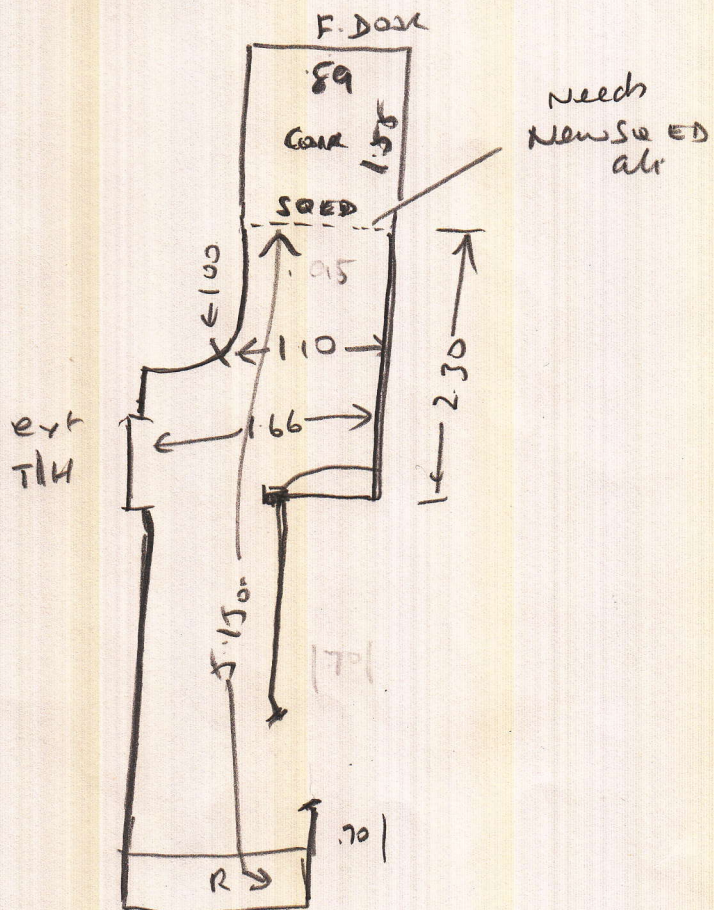 F. DOOR
.89
Coir
1.55
SQ ED
Needs
New SQ ED
ali
1.00
.95
1.10
1.66
2.30
ext
T/H
5.150
.70
R
.70